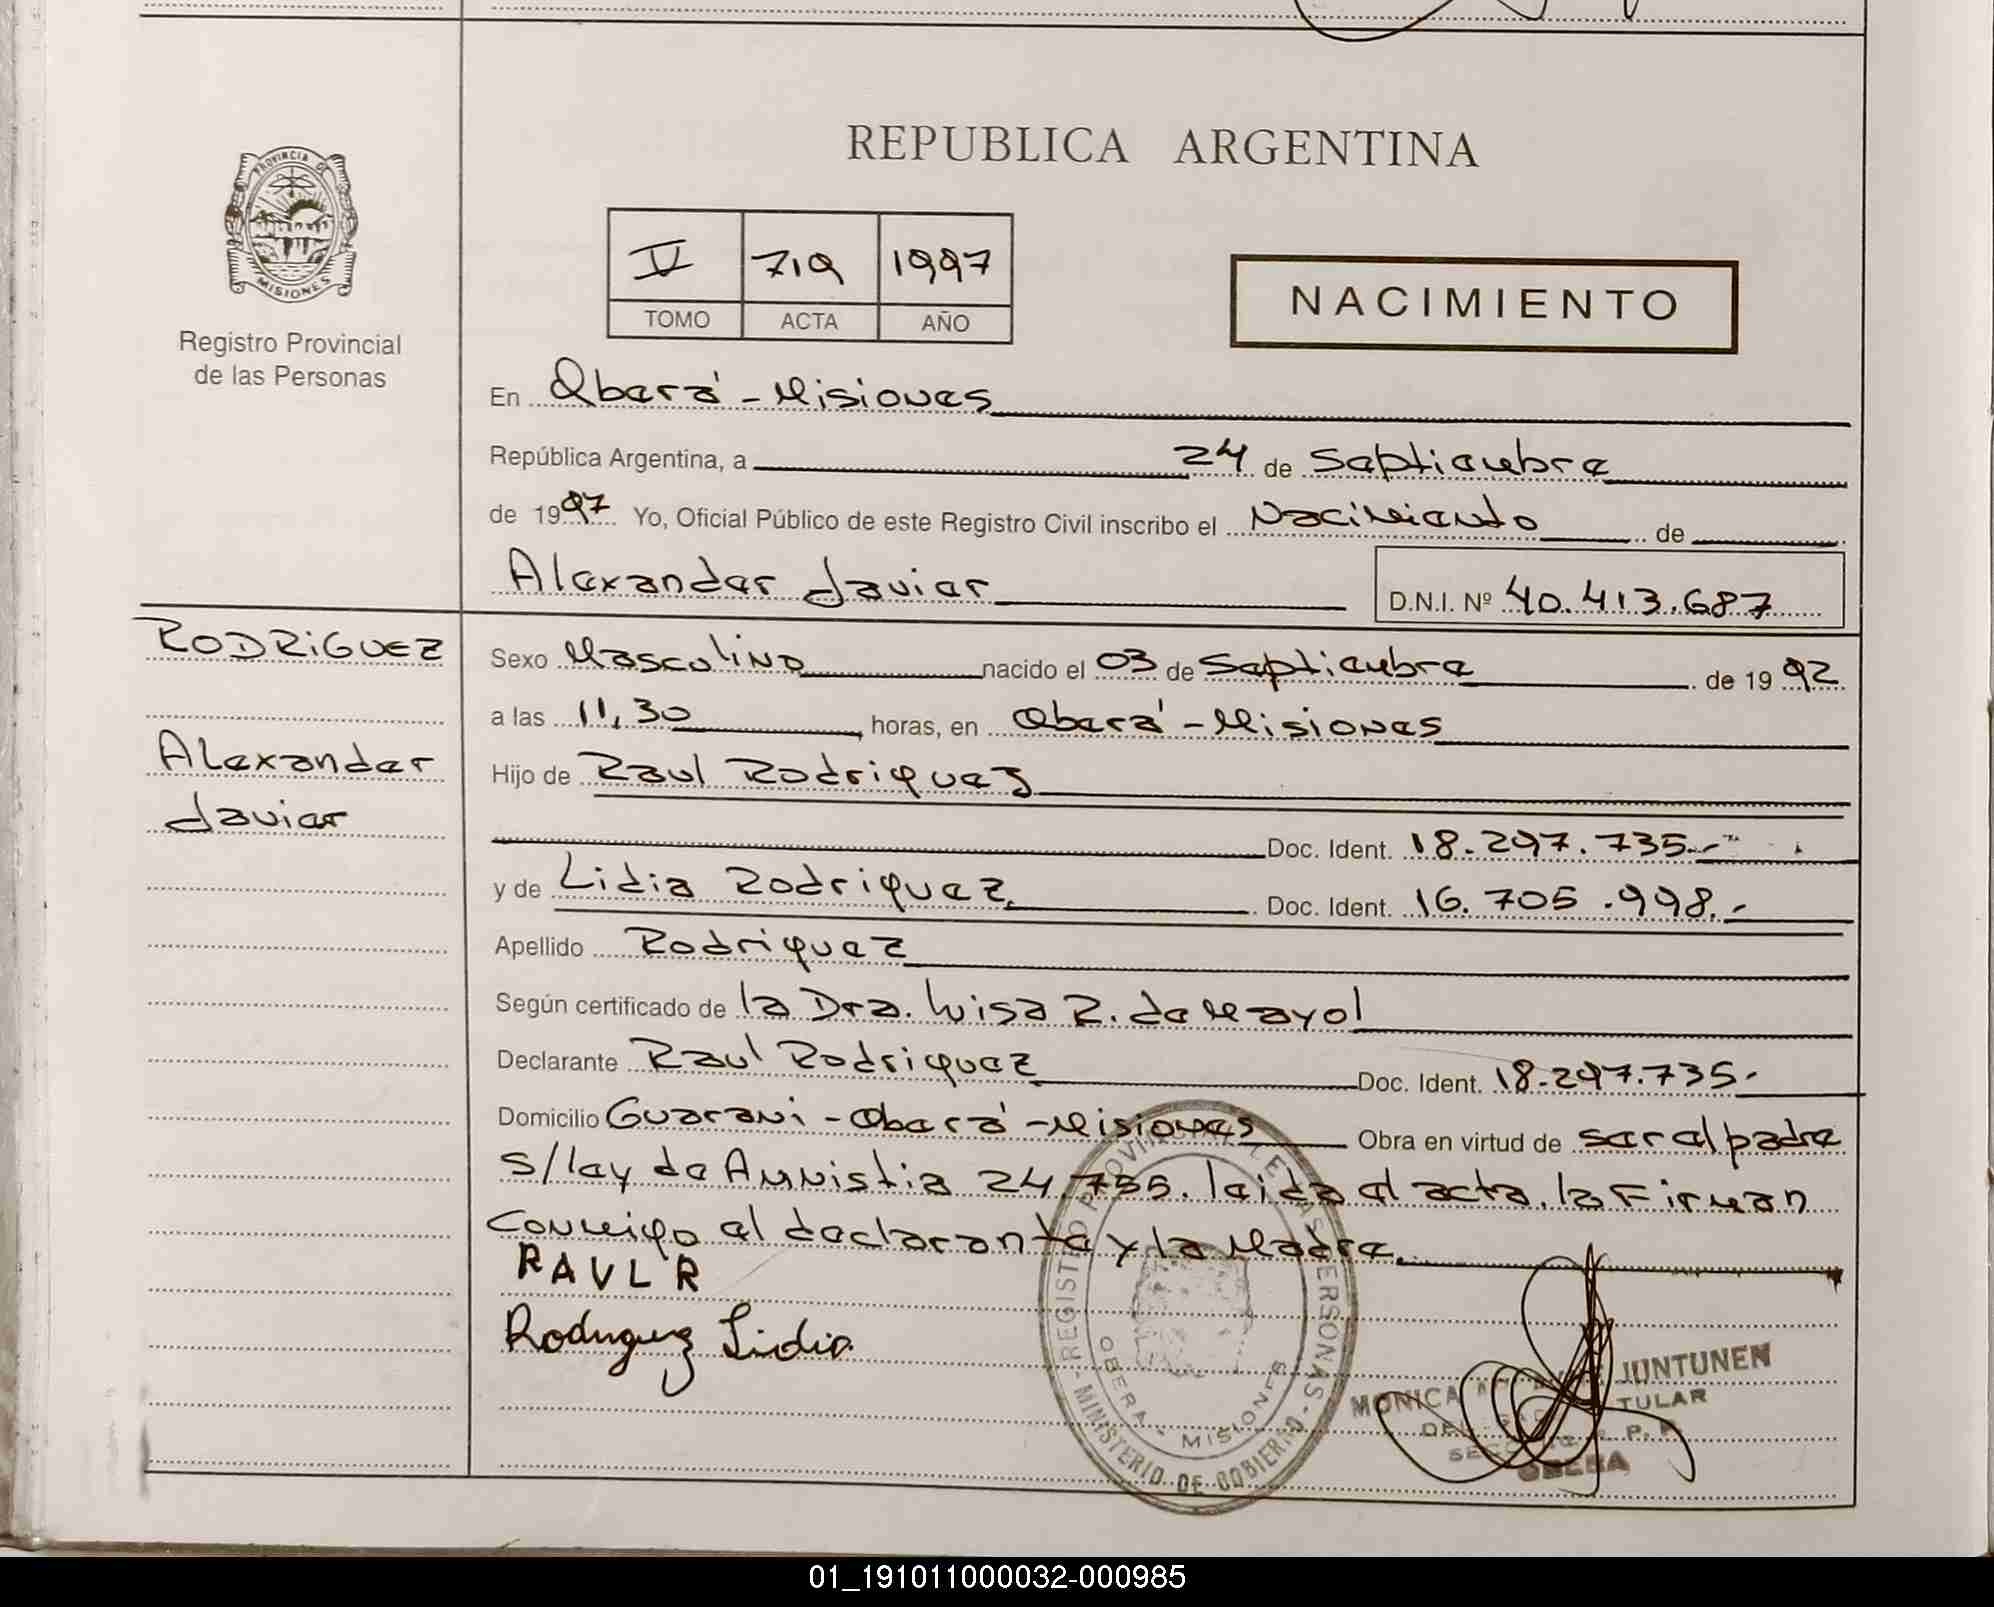 REPUBLICA ARGENTINA
PROVINCIA DE
MISIONES
Registro Provincial
de las Personas
V 719 1997
TOMO ACTA AÑO
NACIMIENTO
En Oberá - Misiones
República Argentina, a 24 de Septiembre
de 1997 Yo, Oficial Público de este Registro Civil inscribo el Nacimiento de
Alexander Javier D.N.I. Nº 40.413.687
RODRIGUEZ
Alexander
Javier
Sexo Masculino nacido el 03 de Septiembre de 1992
a las 11,30 horas, en Oberá - Misiones
Hijo de Raul Rodriguez
Doc. Ident. 18.297.735.-
y de Lidia Rodriguez, Doc. Ident. 16.705.998.-
Apellido Rodriguez
Según certificado de la Dra. Luisa R. de Mayol
Declarante Raul Rodriguez Doc. Ident. 18.297.735.-
Domicilio Guarani - Oberá - Misiones Obra en virtud de ser el padre
s/ley de Amnistia 24.755. leida el acta, la Firman
conmigo el declarante y la Madre.
RAUL R
Rodriguez Lidia
REGISTRO PROVINCIAL DE LAS PERSONAS - MINISTERIO DE GOBIERNO -
OBERA - MISIONES
MONICA JUNTUNEN
TULAR
OBERA
01_191011000032-000985